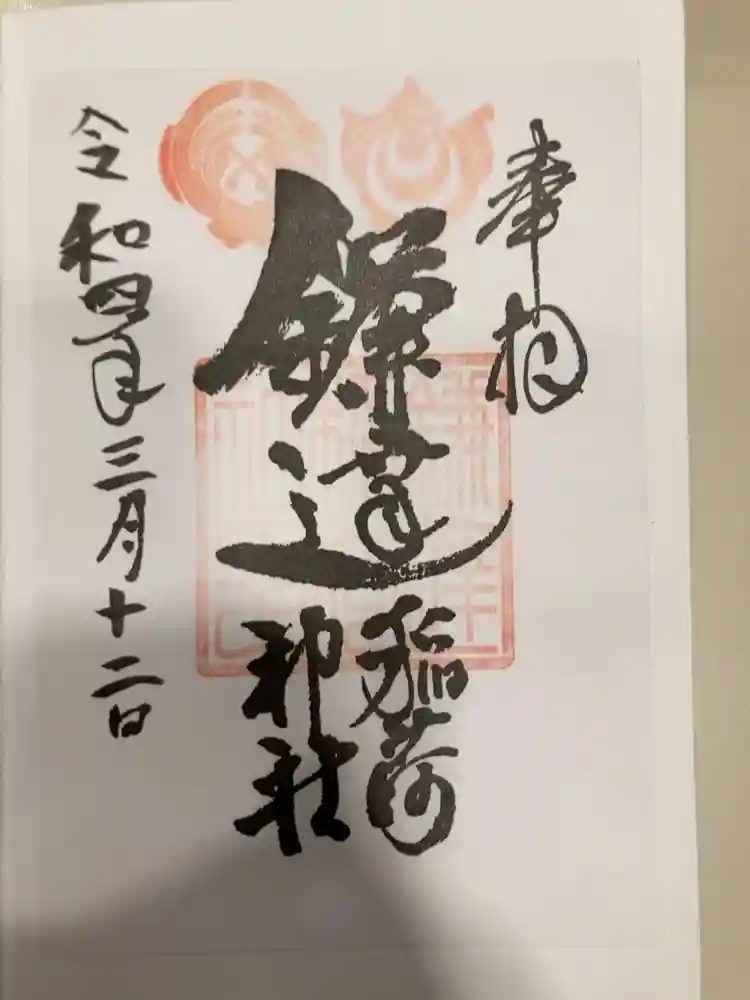 奉拝
鎌達
稲荷
神社
令和四年三月十二日